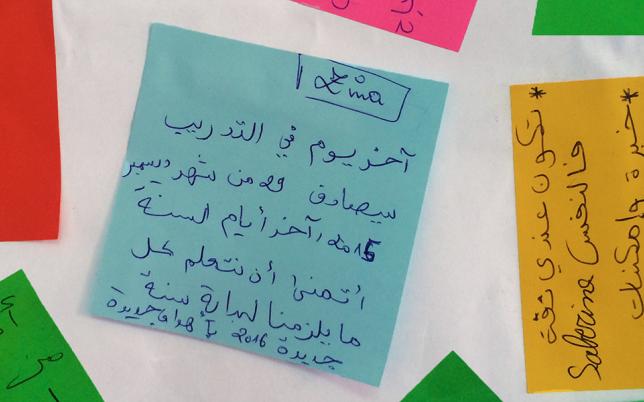 Zina
آخر يوم في التدريب
سيصادف 29 من شهر ديسمبر
2015، آخر أيام السنة
أتمنى أن نتعلم كل
ما يلزمنا لبداية سنة
جديدة 2016 بأهداف جديدة
* تكون عندي ثقة
فالنفس
Sabrina
* خبرة وإمكنات